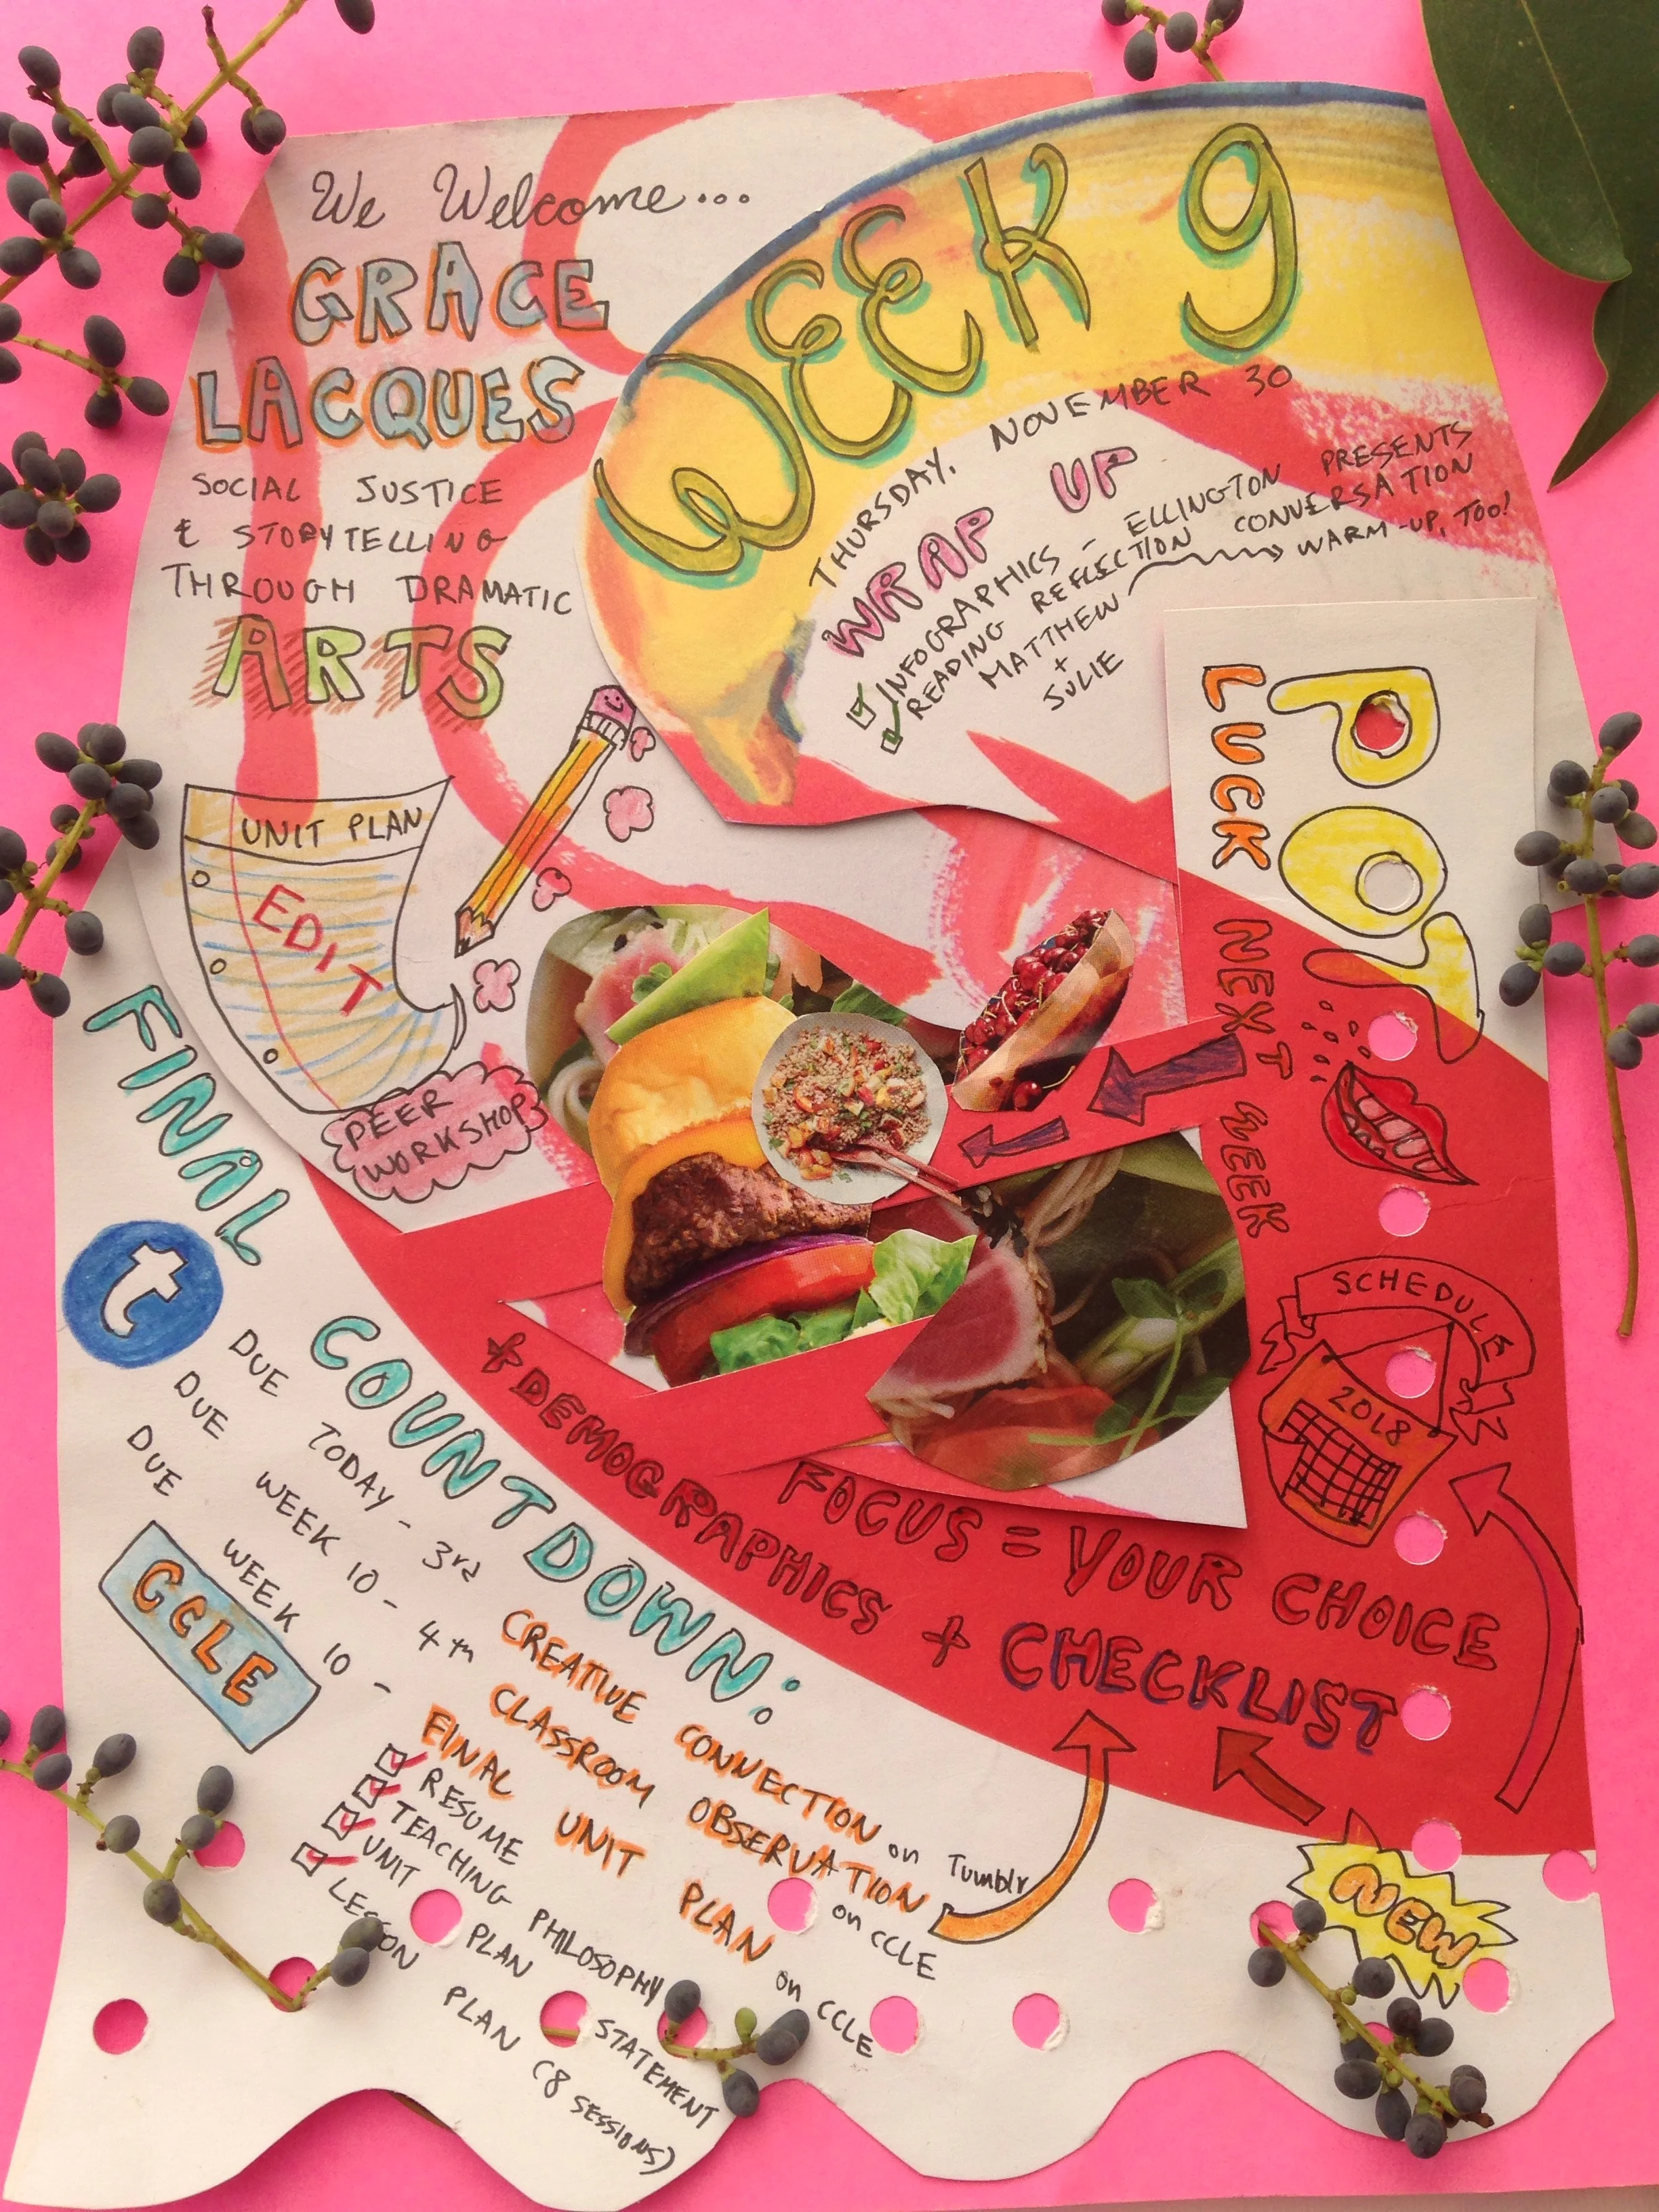 We Welcome...
GRACE
LACQUES
SOCIAL JUSTICE
& STORYTELLING
THROUGH DRAMATIC
ARTS
WEEK 9
THURSDAY, NOVEMBER 30
WRAP UP
INFOGRAPHICS - ELLINGTON PRESENTS
READING REFLECTION CONVERSATION
MATTHEW WARM-UP, TOO!
+
JULIE
POT
LUCK NEXT WEEK
UNIT PLAN
EDIT
PEER
WORKSHOP
SCHEDULE
2018
FOCUS = YOUR CHOICE
+ DEMOGRAPHICS + CHECKLIST
NEW
FINAL
COUNTDOWN:
t
DUE TODAY - 3rd CREATIVE CONNECTION on Tumblr
DUE WEEK 10 - 4th CLASSROOM OBSERVATION on CCLE
DUE WEEK 10 - FINAL UNIT PLAN on CCLE
CCLE
RESUME
TEACHING PHILOSOPHY
UNIT PLAN STATEMENT
LESSON PLAN (8 SESSIONS)